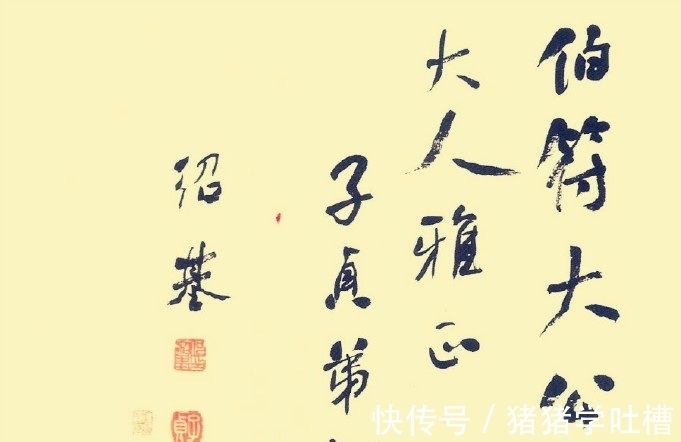 伯符大公
大人雅正
子貞弟
紹基
快传号 / 猪猪学吐槽